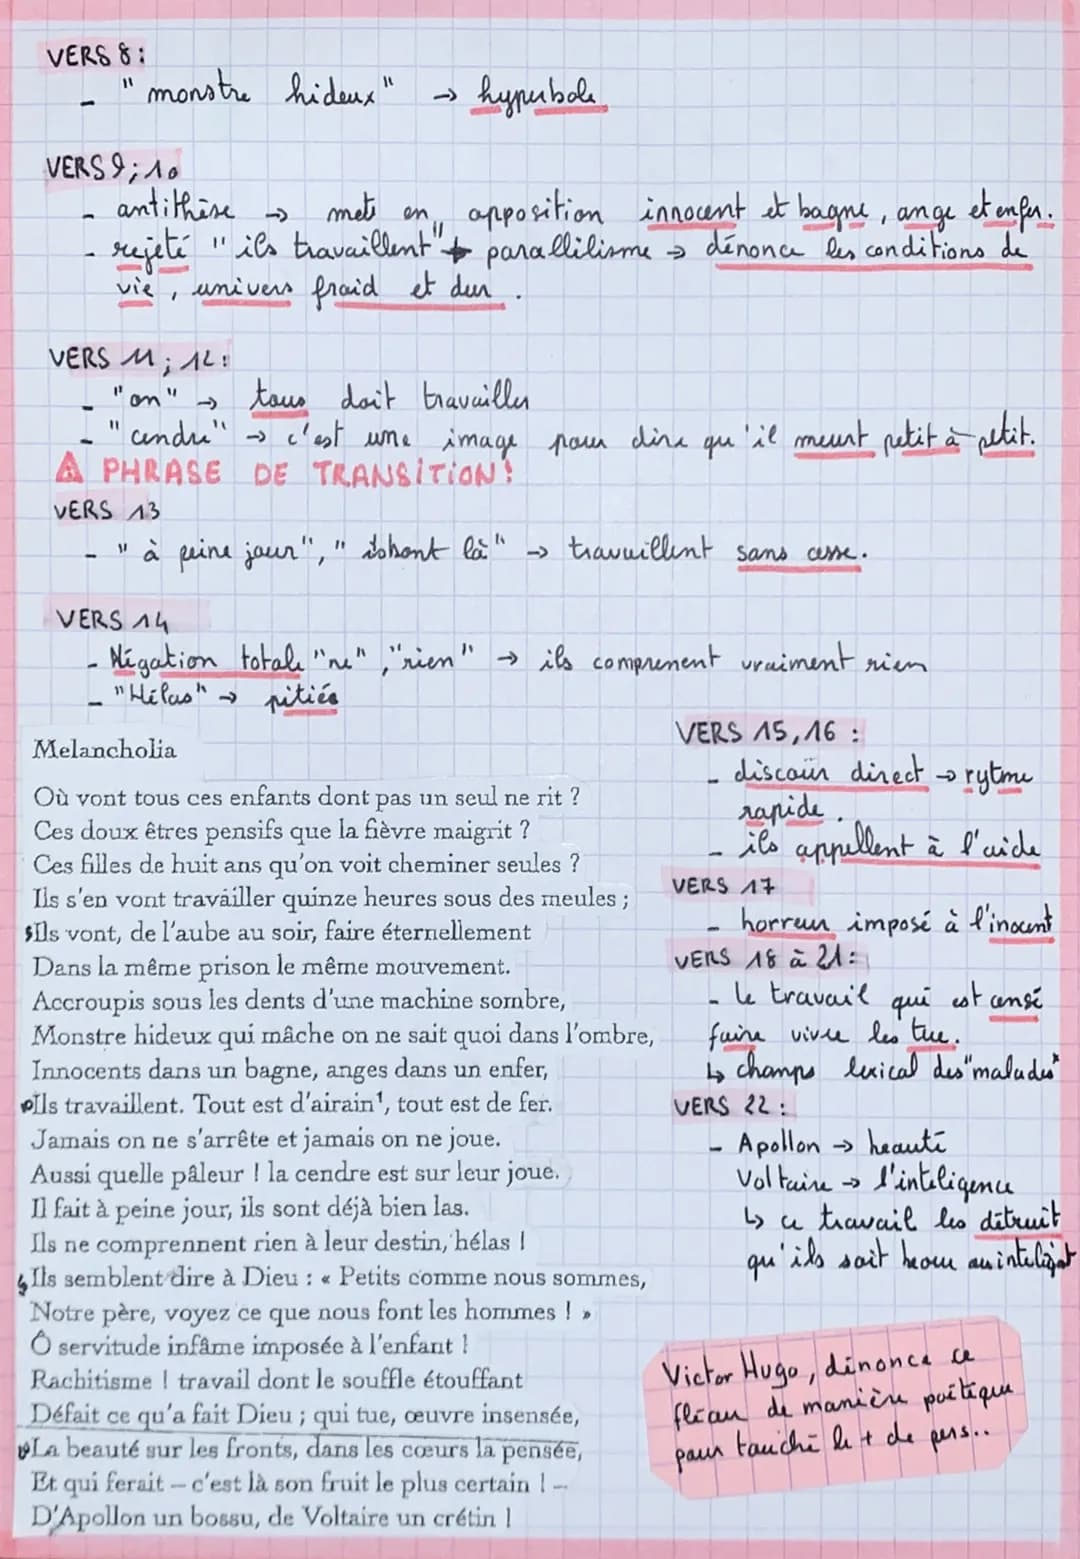 VERS 8 :
- "monstre hideux" → hyperbole
VERS 9 ; 10
- antithèse → mets en opposition innocent et bagne, ange et enfer.
- rejeté "ils travaillent" + parallilisme → dénonce les conditions de
vie, univers froid et dur.
VERS 11 ; 12 :
- "on" → tous doit travailler
- "cendre" → c'est une image pour dire qu'il meurt petit à petit.
⚠ PHRASE DE TRANSITION !
VERS 13
- "à peine jour", " là" → travaillent sans cesse.
VERS 14
- Négation totale "ne", "rien" → ils comprenent vraiment rien
- "Hélas" → pitiés
Melancholia
Où vont tous ces enfants dont pas un seul ne rit ?
Ces doux êtres pensifs que la fièvre maigrit ?
Ces filles de huit ans qu'on voit cheminer seules ?
Ils s'en vont travailler quinze heures sous des meules ;
5 Ils vont, de l'aube au soir, faire éternellement
Dans la même prison le même mouvement.
Accroupis sous les dents d'une machine sombre,
Monstre hideux qui mâche on ne sait quoi dans l'ombre,
Innocents dans un bagne, anges dans un enfer,
Ils travaillent. Tout est d'airain¹, tout est de fer.
Jamais on ne s'arrête et jamais on ne joue.
Aussi quelle pâleur ! la cendre est sur leur joue.
Il fait à peine jour, ils sont déjà bien las.
Ils ne comprennent rien à leur destin, hélas !
Ils semblent dire à Dieu : « Petits comme nous sommes,
Notre père, voyez ce que nous font les hommes ! »
Ô servitude infâme imposée à l'enfant !
Rachitisme ! travail dont le souffle étouffant
Défait ce qu'a fait Dieu ; qui tue, œuvre insensée,
La beauté sur les fronts, dans les cœurs la pensée,
Et qui ferait – c'est là son fruit le plus certain ! –
D'Apollon un bossu, de Voltaire un crétin !
VERS 15, 16 :
- discour direct → rytme
rapide.
- ils appellent à l'aide
VERS 17
- horreur imposé à l'inocent
VERS 18 à 21 :
- le travail qui est censé
faire vivre les tue.
↳ champs lexical des "malades"
VERS 22 :
- Apollon → beauté
Voltaire → l'inteligence
↳ ce travail les détruit
qu'ils soit beau au inteligent
Victor Hugo, dénonce ce
fléau de manière poétique
pour touché le + de pers..